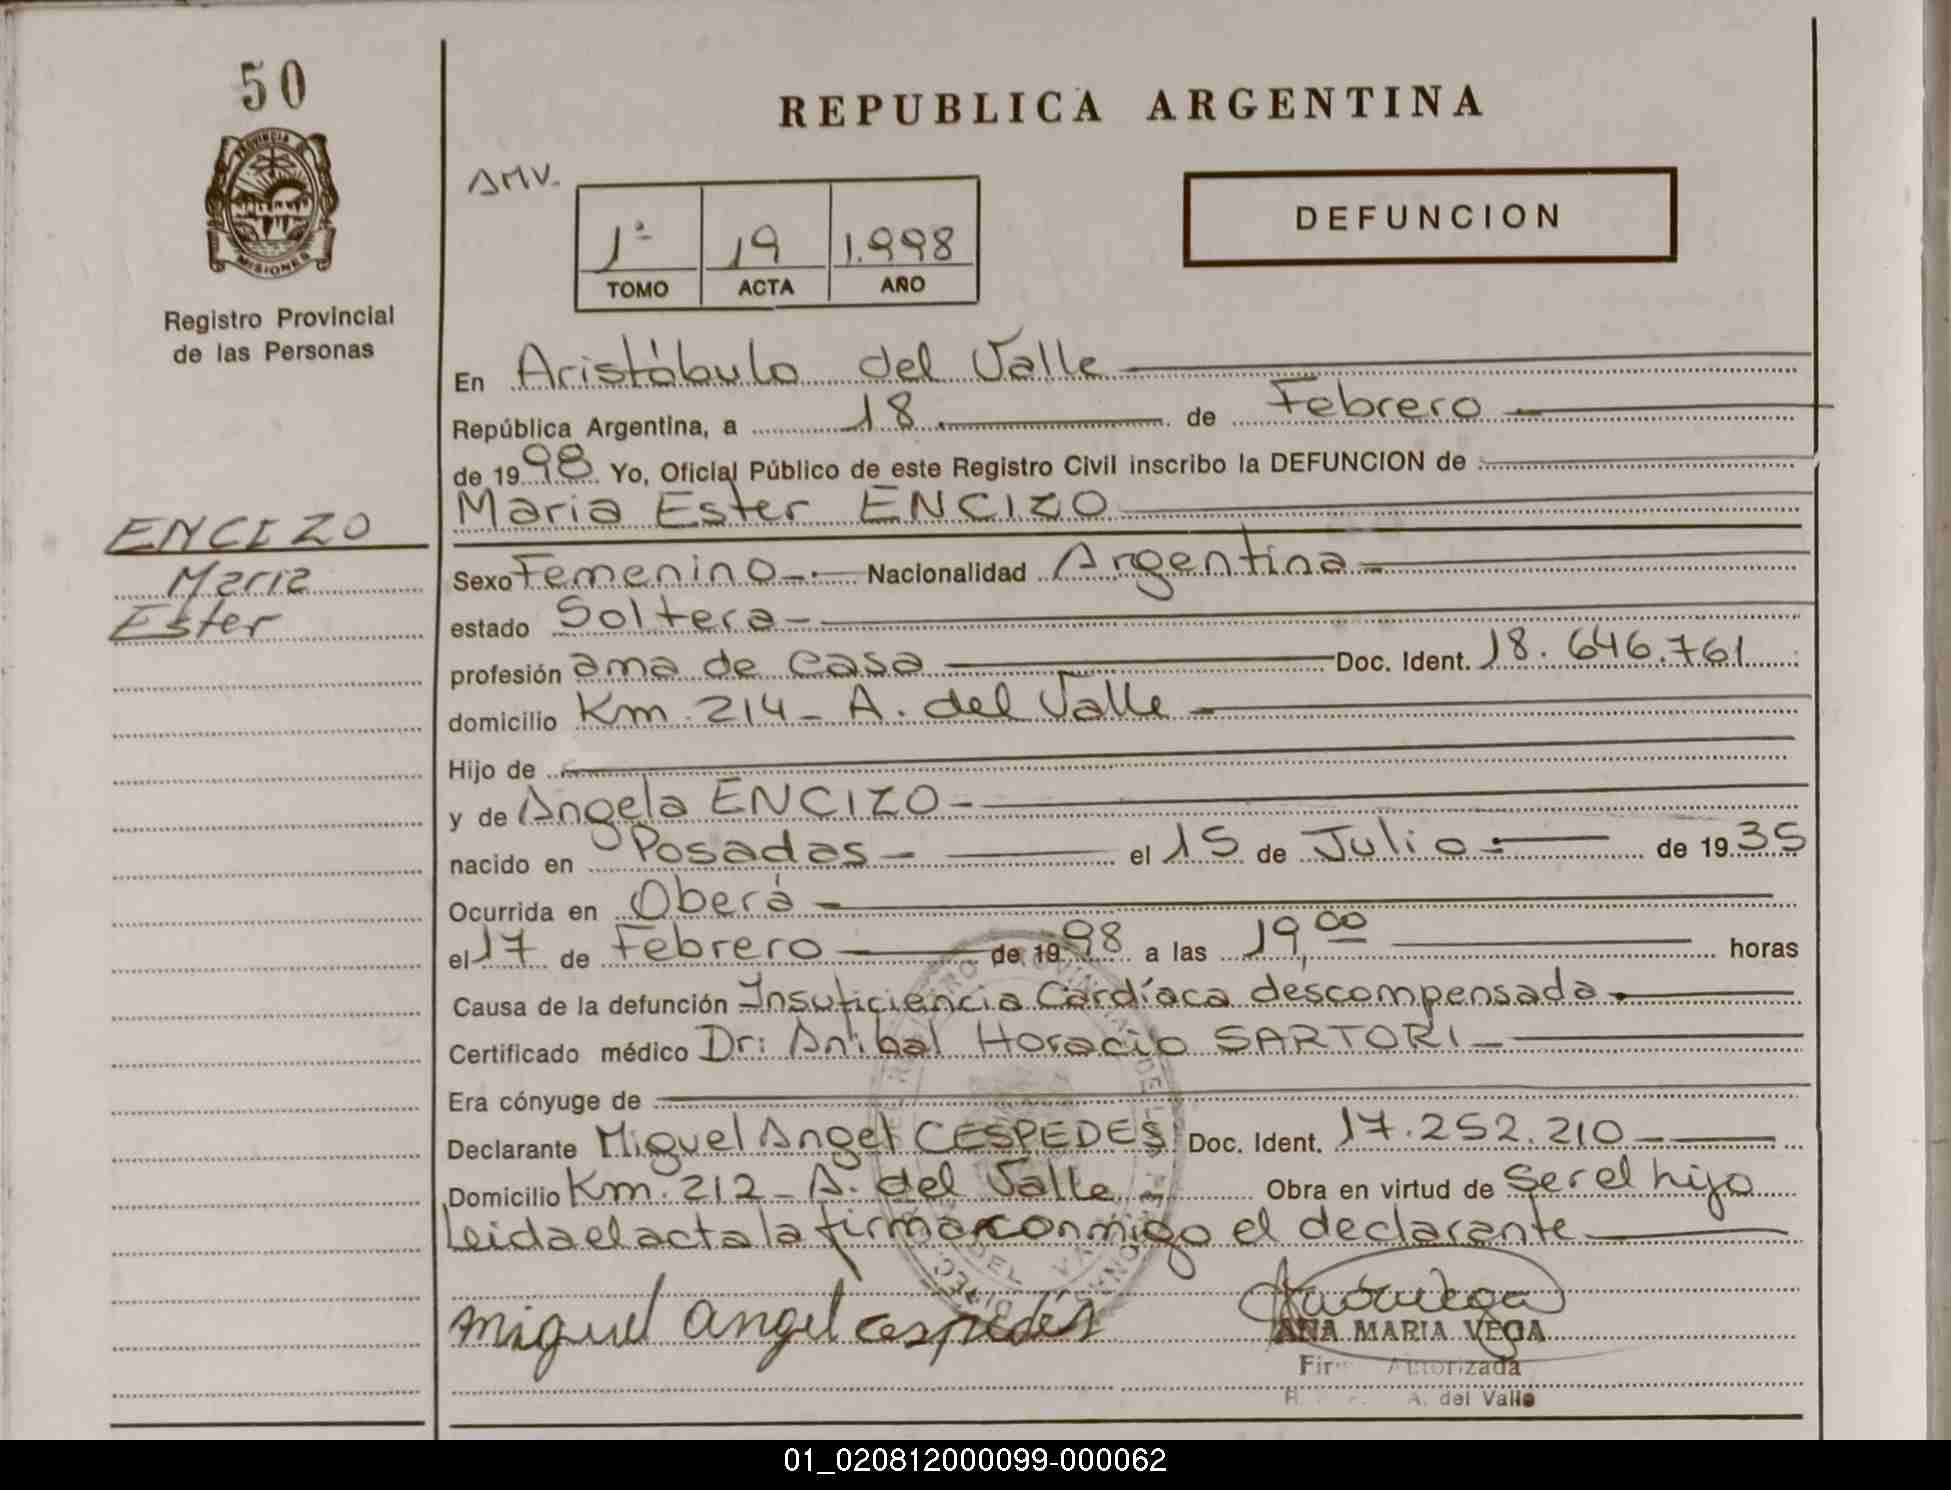 50
PROVINCIA DE
MISIONES
Registro Provincial
de las Personas
ENCIZO
Maria
Ester
REPUBLICA ARGENTINA
AMV.
1ª 19 1.998
TOMO ACTA AÑO
DEFUNCION
En Aristóbulo del Valle
República Argentina, a 18 de Febrero
de 1998 Yo, Oficial Público de este Registro Civil inscribo la DEFUNCION de :
Maria Ester ENCIZO
Sexo Femenino Nacionalidad Argentina
estado Soltera
profesión ama de casa Doc. Ident. 18.646.761
domicilio Km. 214 - A. del Valle
Hijo de
y de Angela ENCIZO
nacido en Posadas el 15 de Julio de 1935
Ocurrida en Oberá
el 17 de Febrero de 1998 a las 19,00 horas
Causa de la defunción Insuficiencia Cardíaca descompensada
Certificado médico Dr: Anibal Horacio SARTORI
Era cónyuge de
Declarante Miguel Angel CESPEDES Doc. Ident. 17.252.210
Domicilio Km. 212 - A. del Valle Obra en virtud de ser el hijo
Leida el acta la firma conmigo el declarante
miguel angel cespedes
ANA MARIA VEGA
Autorizada
A. del Valle
01_020812000099-000062